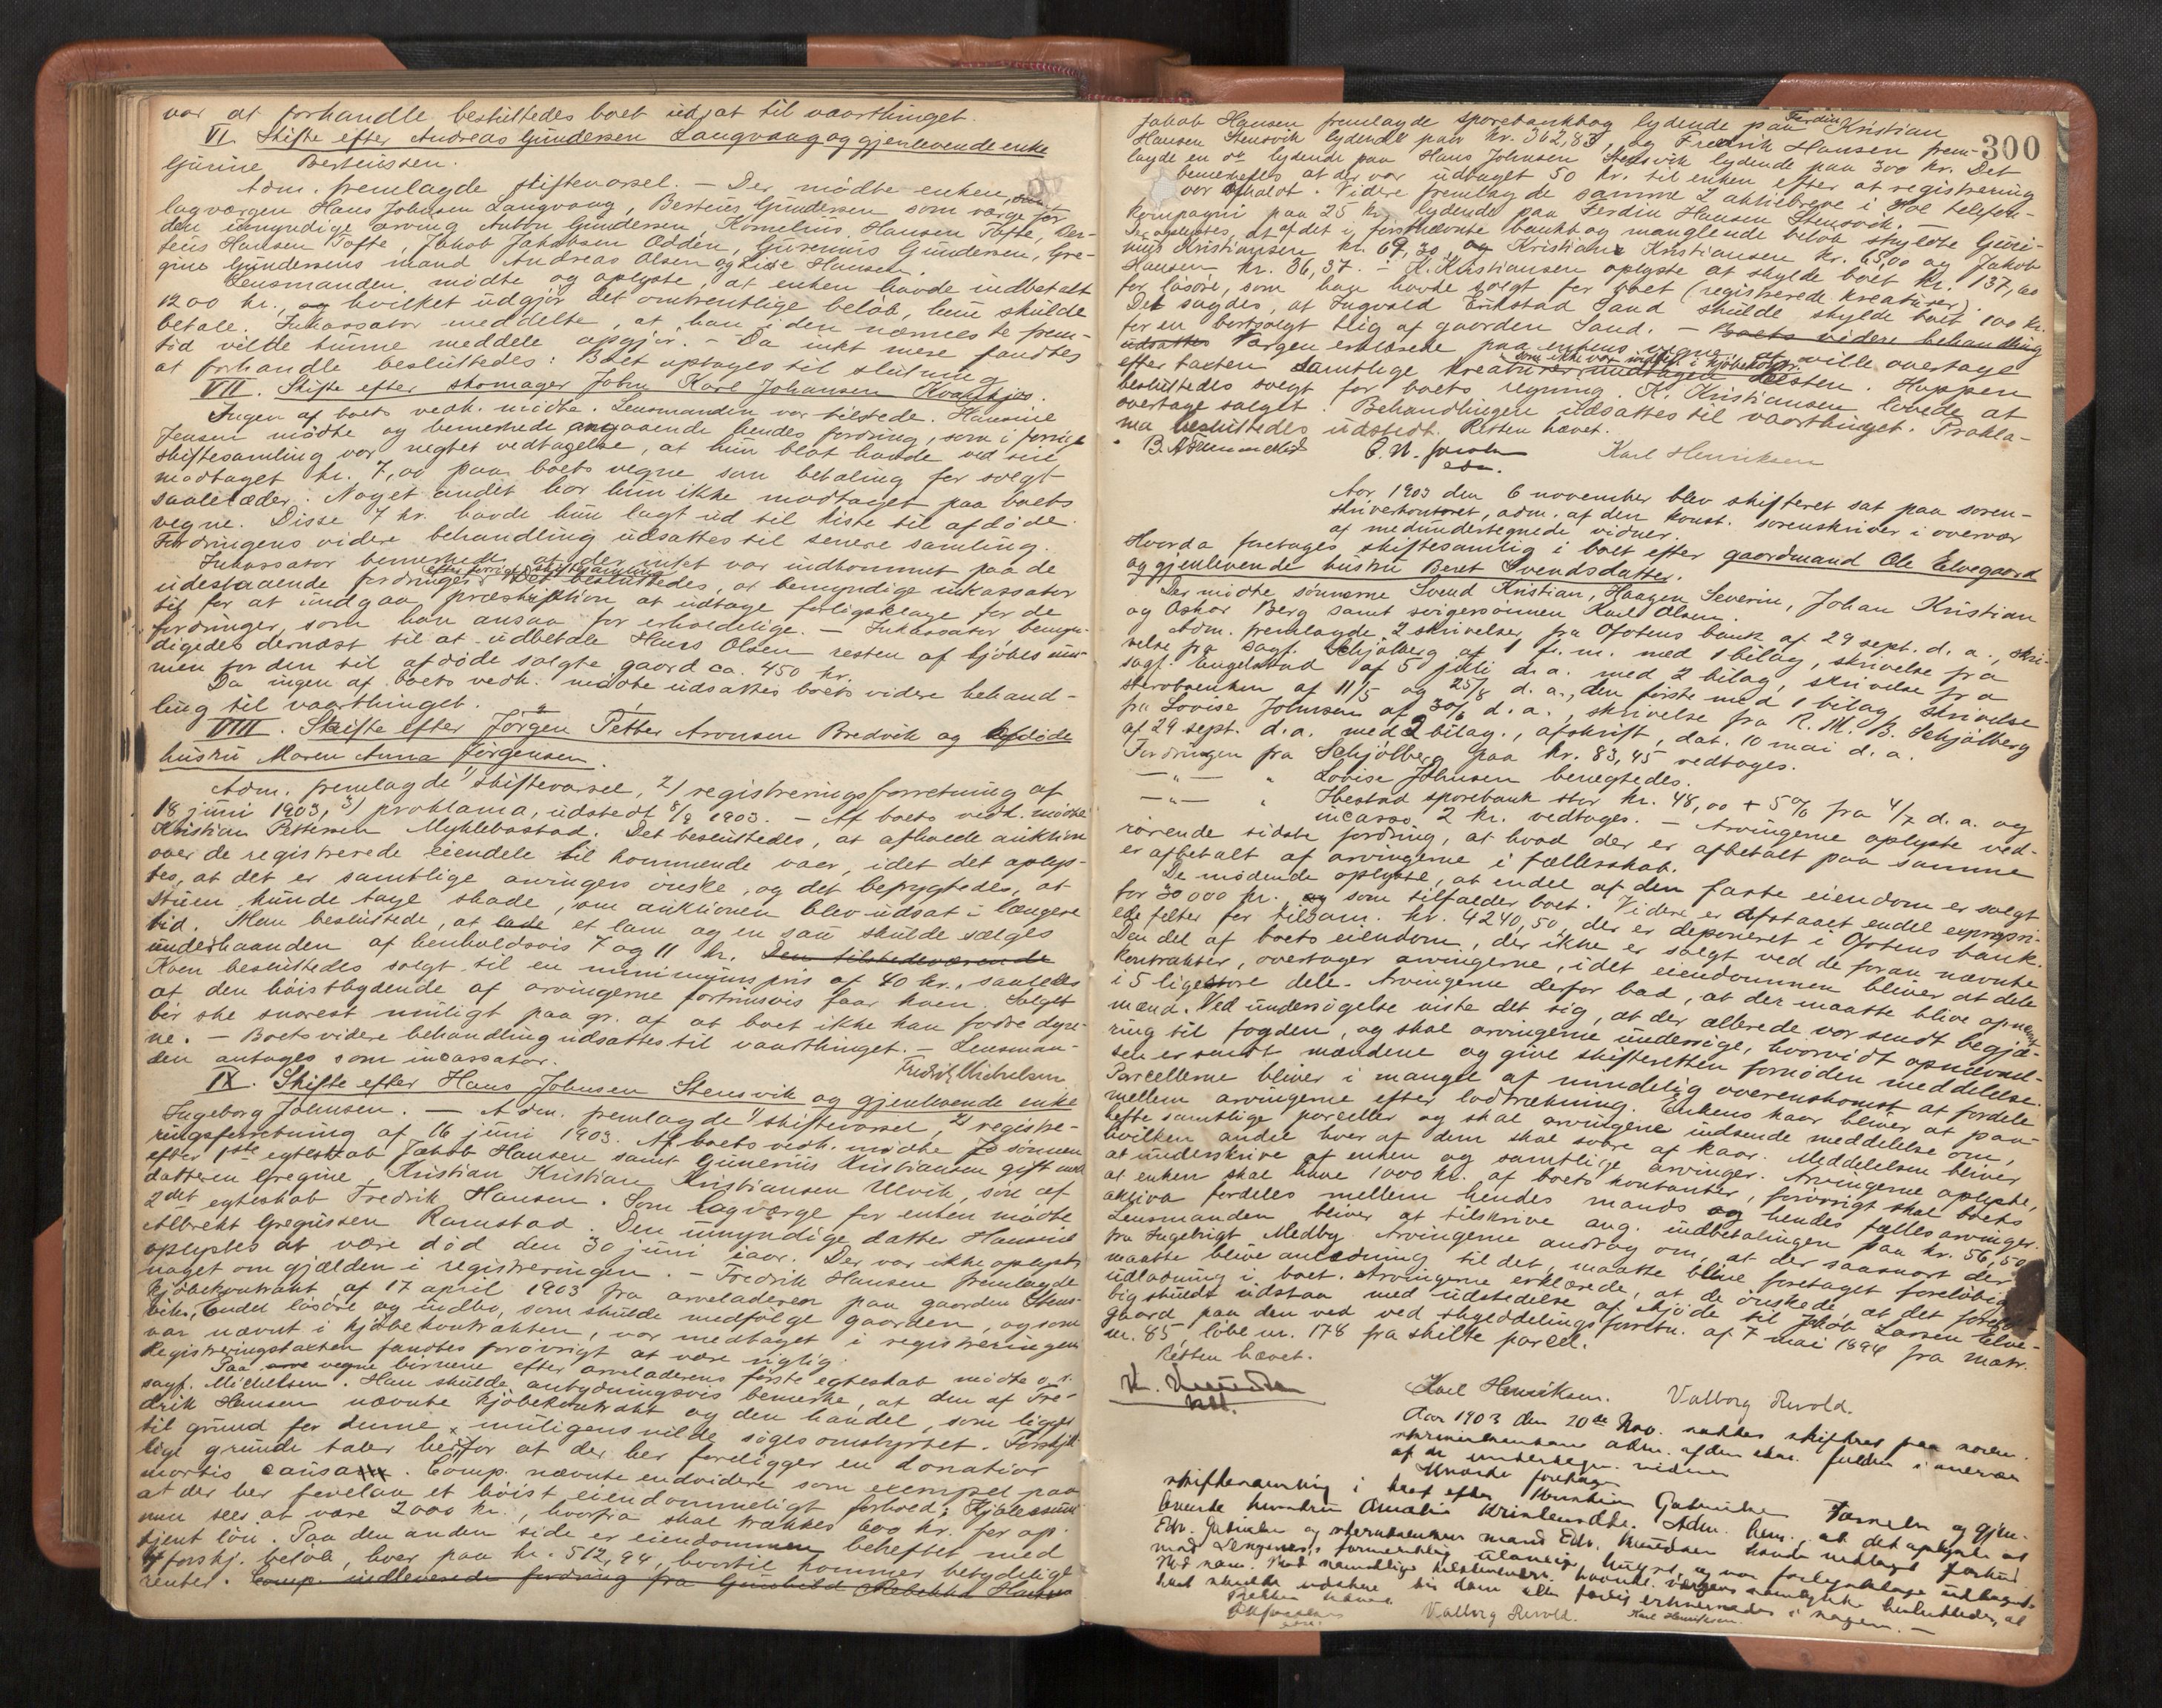 var at forhandle besluttedes boet udsat til vaarthinget.
VI. Skifte efter Andreas Gundersen Langvaag og gjenlevende enke
Gurine Berteussen.
Adm. fremlagde skiftevarsel. — Der mødte enken, samt
lagværgen Hans Johnsen Langvaag, Berteus Gundersen som værge for
den umyndige arving Nubbu Gundersen, Kornelius Hansen Tofte, Ber-
teus Hansen Tofte, Jakob Jakobsen Odden, Gurenius Gundersen, Gre-
gine Gundersens mand Andreas Olsen og Lise Hansen.
Lensmanden mødte og oplyste, at enken havde indbetalt
1200 kr., og hvilket udgjør det omtrentlige beløb, hun skulde
betale. Inkassator meddelte, at han i den nærmeste frem-
tid vilde kunne meddele opgjør. — Da intet mere fandtes
at forhandle besluttedes: Boet optages til slutning.
VII. Skifte efter skomager John Karl Johansen Kvalskjos.
Ingen af boets vedk. mødte. Lensmanden var tilstede. Hansine
Jensen mødte og bemerkede angaaende hendes fordring, som i forrige
skiftesamling var negtet vedtagelse, at hun blot havde ved sin
modtaget kr. 7,00 paa boets vegne som betaling for solgt
saalelæder. Noget andet har hun ikke modtaget paa boets
vegne. Disse 7 kr. havde hun lagt ud til kiste til afdøde.
Fordringens videre behandling udsattes til senere samling.
Inkassator bemerkede, at der intet var indkommet paa de
udestaaende fordringer efter forrige skiftesamling. Det besluttedes, at bemyndige inkassator
til for at undgaa præskription at udtage forligsklage for de
fordringer, som han ansaa for erholdelige. — Inkassator bemyn-
digedes dernæst til at udbetale Hans Olsen resten af kjøbesum-
men for den til afdøde solgte gaard ca. 450 kr.
Da ingen af boets vedk. mødte udsattes boets videre behand-
ling til vaarthinget.
VIII. Skifte efter Jørgen Petter Aronsen Bredvik og afdøde
hustru Maren Anna Jørgensen.
Adm. fremlagde 1) skiftevarsel, 2) registreringsforretning af
18 juni 1903, 3) proklama, udstedt 8/9 1903. — Af boets vedk. mødte
Kristian Pettersen Myklebostad. Det besluttedes, at afholde auktion
over de registrerede eiendele til kommende vaar, idet det oplys-
tes, at det er samtlige arvingers ønske, og det befrygtedes, at
stuen kunde tage skade, om auktionen blev udsat i længere
tid. Man besluttede, at lade et lam og en sau skulde sælges
underhaanden af henholdsvis 7 og 11 kr. Den tilstedeværende
Koen besluttedes solgt til en minimumspris af 40 kr., saaledes
at den høistbydende af arvingerne fortrinsvis faar koen. Salget
bør ske snarest muligt paa gr. af at boet ikke kan fodre dyre-
ne. — Boets videre behandling udsattes til vaarthinget. — Lensman-
den antages som incassator.
Fredrik Michelsen
IX. Skifte efter Hans Johnsen Stensvik og gjenlevende enke
Ingeborg Johnsen. — Adm. fremlagde 1) skiftevarsel 2) registre-
ringsforretning af 16 juni 1903. Af boets vedk. mødte sønnen
efter 1ste egteskab Jakob Hansen samt Gunerius Kristiansen gift med
datteren Gregine, Kristian Kristian Kristiansen Ulvik, søn af
2det egteskab Fredrik Hansen. Som lagværge for enken mødte
Albrekt Gregussen Ramstad. Den umyndige datter Hansine
oplystes at være død den 30 juni iaar. Der var ikke oplyst
noget om gjælden i registreringen. — Fredrik Hansen fremlagde
kjøbekontrakt af 17 april 1903 fra arveladeren paa gaarden Stens-
vik. Endel løsøre og indbo, som skulde medfølge gaarden, og som
var nævnt i kjøbekontrakten, var medtaget i registreringen.
Registreringstaxten fandtes forøvrigt at være rigtig.
Paa vegne børnene efter arveladerens første egteskab mødte o.r.
sagf. Michelsen. Han skulde antydningsvis bemerke, at den af Fre-
drik Hansen nævnte kjøbekontrakt og den handel, som ligger
til grund for denne, muligens vilde søges omstyrtet. Forskjel-
lige grunde taler herfor at der her foreligger en donatior
mortis causa. Comp. nævnte endvidere som exempel paa
at der her forelaa et høist eiendommeligt forhold: Kjøbesum-
men sees at være 2000 kr., hvorfra skal trækkes 600 kr. for op-
tjent løn. Paa den anden side er eiendommen beheftet med
4 forskj. beløb, hver paa kr. 512,94, hvortil kommer betydelige
renter. Comp. indleverede fordring fra Gunhild Rebekka Hansen
300
Jakob Hansen fremlagde sparebankbog lydende paa Ferdin Kristian
Hansen Stensvik lydende paa kr. 362,83, og Fredrik Hansen frem-
lagde en do lydende paa Hans Johnsen Stensvik lydende paa 300 kr. Det
bemerkedes at der var udtaget 50 kr. til enken efter at registrering
var afholdt. Videre fremlagde samme 2 aktiebreve i telefon-
kompagni paa 25 kr. lydende paa Ferdin Hansen Stensvik. —
Det oplystes, at af det i førstnævnte bankbog manglende beløb skyldte Guri-
nius Kristiansen kr. 69,30, og Kristian Kristiansen kr. 65,00 og Jakob
Hansen kr. 36,37. — K. Kristiansen oplyste at skylde boet kr. 137,60
for løsøre, som han havde solgt for boet (registrerede kreaturer).
Det sagdes, at Ingvald Erikstad Sand skulde skylde boet 100 kr.
for en bortsolgt teig af gaarden Sand. — Boets videre behandling
udsattes Værgen erklærede paa enkens vegne, at ville overtage
efter taxten samtlige kreaturer som ikke var indtaget i kjøbekontr. undtagen hesten. Hoppen
besluttedes solgt for boets regning. K. Kristiansen lovede at
overtage salget. Behandlingen udsattes til vaarthinget. Prokla-
ma besluttedes udstedt. Retten hævet.
Karl Henriksen
Aar 1903 den 6 november blev skifteret sat paa soren-
skriverkontoret, adm. af den konst. sorenskriver i overvær
af medundertegnede vidner.
Hvorda foretoges skiftesamling i boet efter gaardmand Ole Elvegaard
og gjenlevende hustru Beret Svendsdatter.
Der mødte sønnerne Svend Kristian, Haagen Severin, Johan Kristian
og Oskar Berg samt svigersønnen Karl Olsen.
Adm. fremlagde 2 skrivelser fra Ofotens bank af 29 sept. d. a., skri-
velse fra sagf. Schjølberg af 1 f. m. med 1 bilag, skrivelse fra
sagf. Engelstad af 5 juli d. a. med 2 bilag, skrivelse fra
sterboenken af 11/5 og 25/8 d. a., den første med 1 bilag, skrivelse
fra Lovise Johnsen af 30/6 d. a., skrivelse fra R. M. B. Schjølberg
af 29 sept. d. a. med 2 bilag., afskrift, dat. 10 mai d. a.
Fordringen fra Schjølberg paa kr. 83,45 vedtoges.
—"— " Lovise Johnsen benegtedes.
—"— " Ibestad sparebank stor kr. 48,00 + 5% fra 4/7 d. a. og
incasso 2 kr. vedtoges. — Arvingerne oplyste ved-
rørende sidste fordring, at hvad der er afbetalt paa samme
er afbetalt af arvingerne i fællesskab.
De mødende oplyste, at endel af den faste eiendom er solgt
for 30 000 kr., og som tilfalder boet. Videre er afstaaet endel expropri-
erede felter for tilsam. kr. 4240,50, der er deponeret i Ofotens bank.
Den del af boets eiendom, der ikke er solgt ved de foran nævnte
kontrakter, overtager arvingerne, idet eiendommen bliver at dele
i 5 ligestore dele. Arvingerne derfor bad, at der maatte blive opnævnt
mænd. Ved undersøgelse viste det sig, at der allerede var sendt begjæ-
ring til fogden, og skal arvingerne undersøge, hvorvidt opnævnel-
sen er sendt mændene og give skifteretten fornøden meddelelse.
Parcellerne bliver i mangel af mindelig overenskomst at fordele
mellem arvingerne efter lodtrækning. Enkens kaar bliver at paa-
hefte samtlige parceller og skal arvingerne indsende meddelelse om,
hvilken andel hver af dem skal svare af kaar. Meddelelsen bliver
at underskrive af enken og samtlige arvinger. Arvingerne oplyste,
at enken skal have 1000 kr. af boets kontanter, forøvrigt skal boets
aktiva fordeles mellem hendes mands og hendes fællesarvinger.
Lensmanden bliver at tilskrive ang. indbetalingen paa kr. 56,50
fra Ingebrigt Medby. Arvingerne androg om, at der saasnart der
maatte blive anledning til det, maatte blive foretaget foreløbig
udlodning i boet. Arvingerne erklærede, at de ønskede, at det
udstaa med udstedelse af skjøde til Jakob Larsen Elve-
gaard paa den ved ved skylddelingsforretn. af 7 mai 1894 fra matr.
nr. 85, løbe nr. 178 fra skilte parcel.
Retten hævet.
Karl Henriksen. Valborg Revold.
Aar 1903 den 20de Nov. sattes skifteret paa soren-
skriverkontoret adm. af den edsv. fuldm. i overvær
af de undertegn. vidner
Hvorda foretoges
skiftesamling i boet efter Gabrielsen og gjen-
levende hustru Amalie . Adm. bem. at det oplystes at
Edv. Gabrielsen og sterboenkens mand Edv. Knudsen havde nedlagt forbud

Retten hævet
Valborg Revold. Karl Henriksen.